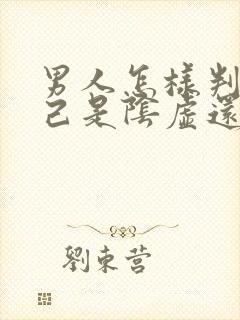 男人怎樣判
己是陰虛還
劉東营